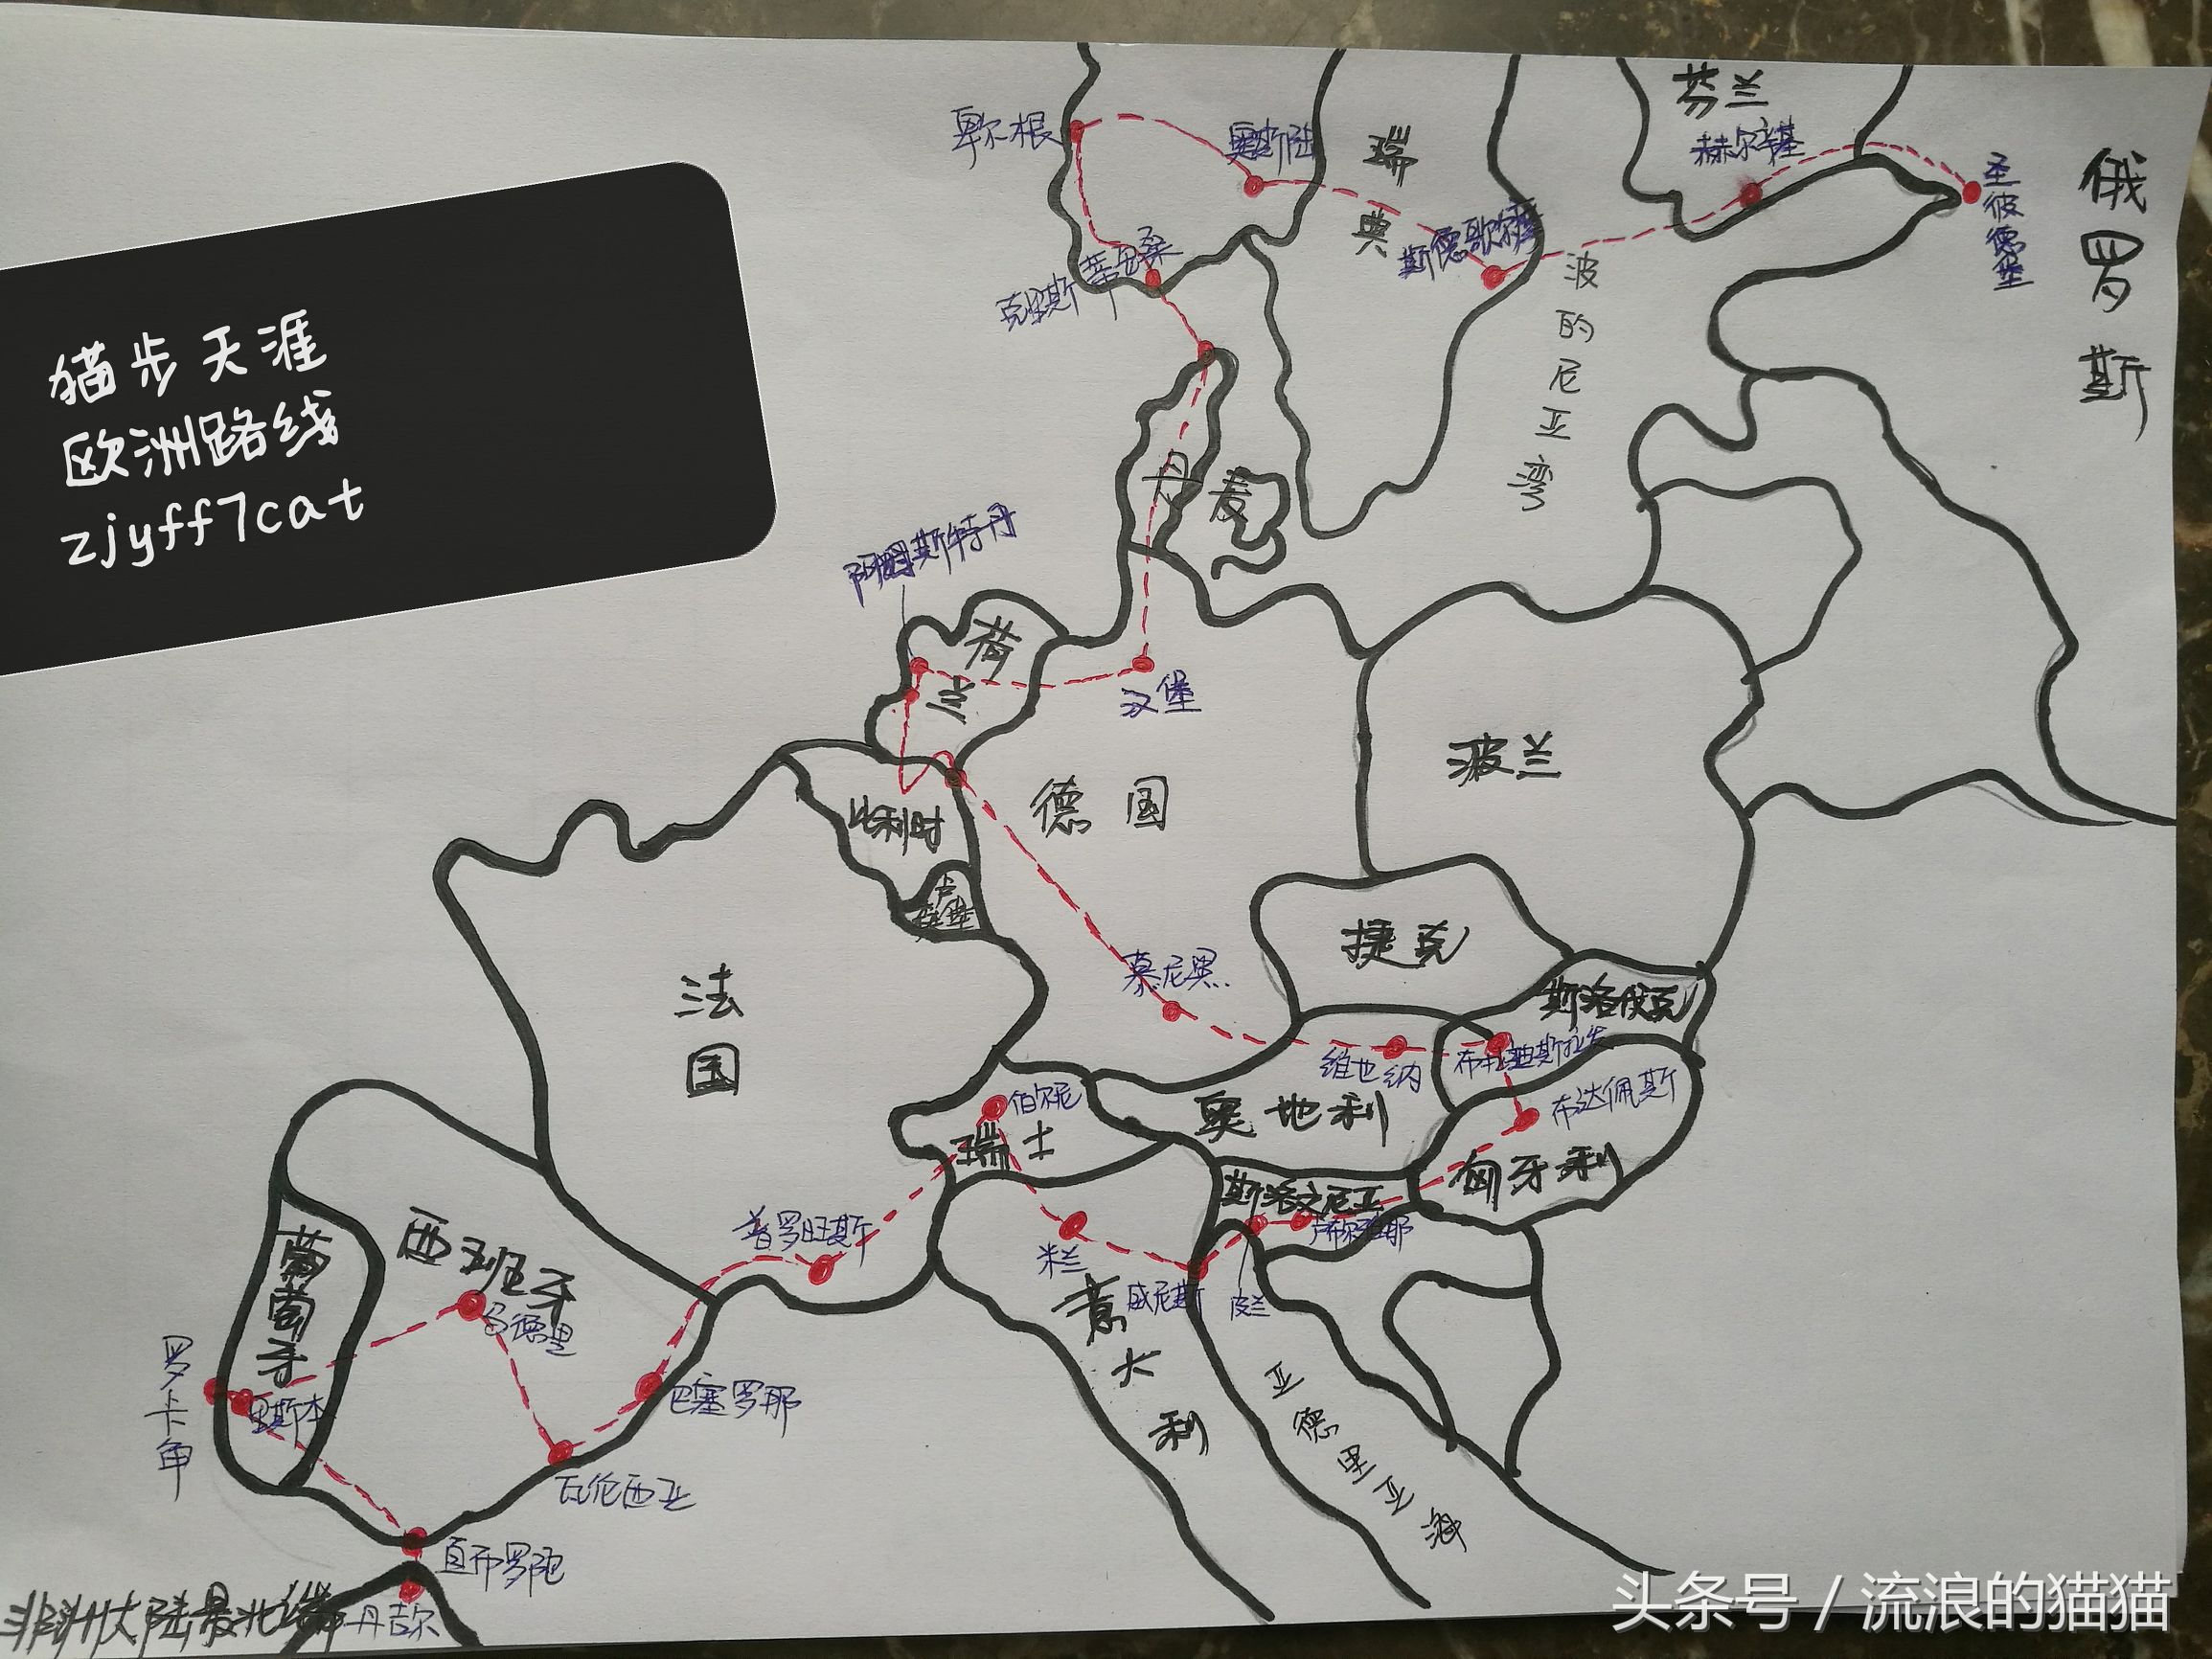 芬兰
赫尔辛基
卑尔根
奥斯陆
瑞典
圣彼德堡
俄罗斯
斯德歌尔摩
克里斯蒂安桑
波的尼亚湾
猫步天涯
欧洲路线
zjyff7cat
丹麦
阿姆斯特丹
荷兰
汉堡
波兰
德国
比利时
捷克
慕尼黑
斯洛伐克
法国
维也纳
布达佩斯
伯尔尼
奥地利
瑞士
匈牙利
斯洛文尼亚
卢布尔雅那
普罗旺斯
西班牙
葡萄牙
米兰
威尼斯
皮兰
意大利
马德里
罗卡角
里斯本
巴塞罗那
亚德里亚海
瓦伦西亚
直布罗陀
非洲大陆最北端
丹吉尔
头条号 / 流浪的猫猫